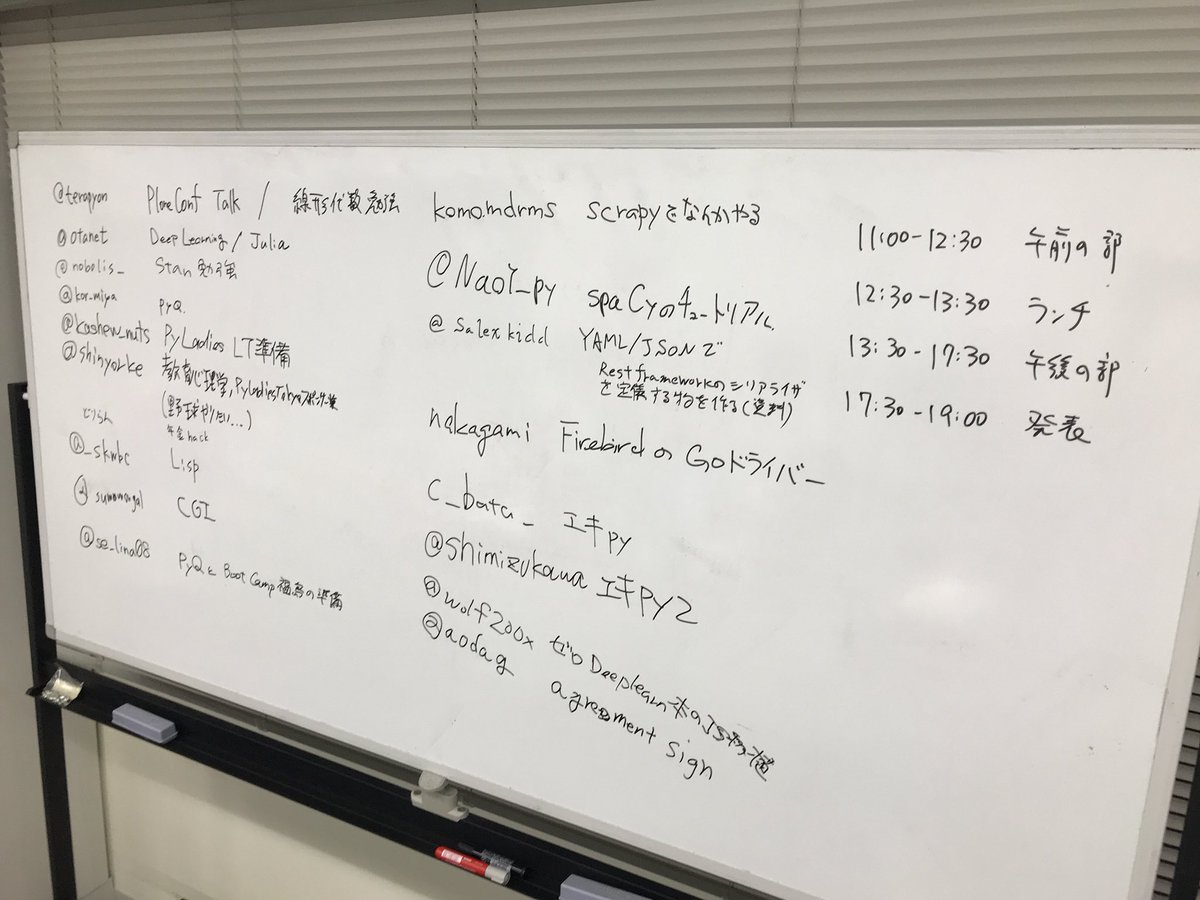 @terapyon PloneConf Talk / 線形代数勉強
@otanet DeepLearning / Julia
@nobolis_ Stan勉強
@kor_miya PyQ.
@kashew_nuts PyLadies LT準備
@shinyorke 教育心理学, PyLadiesTokyo
(野球やりたい...)
年金hack
@_skmbc Lisp
CGI
@se_lina08 PyQと BootCamp福島の準備
komo.mdrms scrapyをなんかやる
@NaoY_py spaCyのチュートリアル.
@salexkidd YAML/JSONで
Rest frameworkのシリアライザ
を定義する物を作る(資料)
nakagami FirebirdのGoドライバー
c_bata_ エキpy
@shimizukawa エキPY2
@wolf200x ゼロDeeplearn本のJS
@aodag agreement sign
11:00-12:30 午前の部
12:30-13:30 ランチ
13:30-17:30 午後の部
17:30-19:00 発表